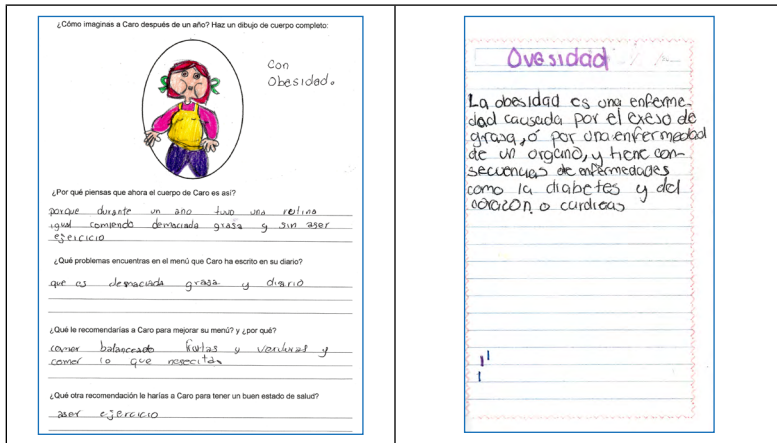 ¿Cómo imaginas a Caro después de un año? Haz un dibujo de cuerpo completo:
Con
Obesidad.
¿Por qué piensas que ahora el cuerpo de Caro es así?
porque durante un año tuvo una rutina
igual comiendo demaciada grasa y sin aser
ejercicio
¿Qué problemas encuentras en el menú que Caro ha escrito en su diario?
que es demaciada grasa y diario
¿Qué le recomendarías a Caro para mejorar su menú? y ¿por qué?
comer balanceado frutas y verduras y
comer lo que nesecita.
¿Qué otra recomendación le harías a Caro para tener un buen estado de salud?
aser ejercicio
Ovesidad
La obesidad es una enferme-
dad causada por el exeso de
grasa, ó por una enfermedad
de un organo, y tiene con-
secuencias de enfermedades
como la diabetes y del
corazon o cardicas